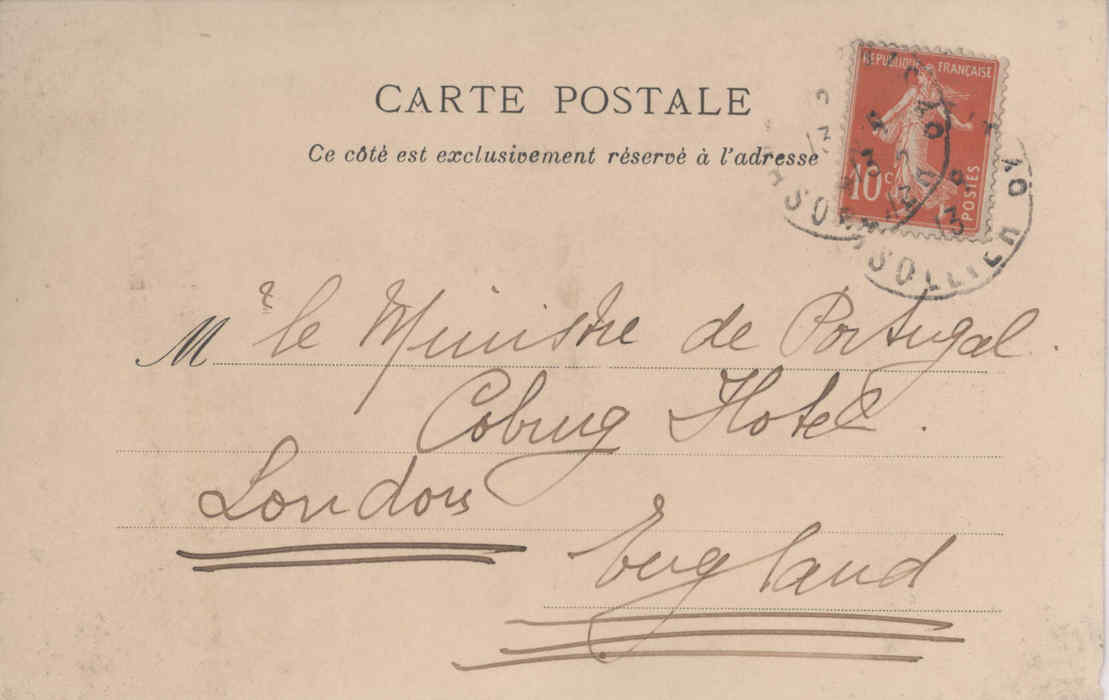 CARTE POSTALE
Ce côté est exclusivement réservé à l'adresse
RÉPUBLIQUE FRANÇAISE
10 c
POSTES
Mr le Ministre de Portugal.
Coburg Hotel.
London
England